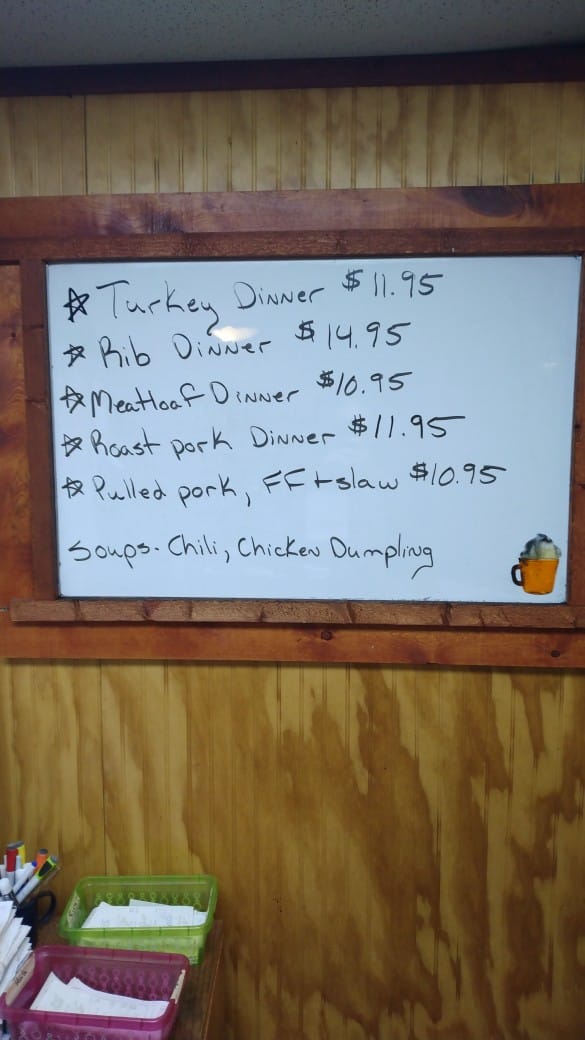 ☆ Turkey Dinner $11.95
☆ Rib Dinner $14.95
☆ Meatloaf Dinner $10.95
☆ Roast pork Dinner $11.95
☆ Pulled pork, FF + slaw $10.95
Soups. Chili, Chicken Dumpling